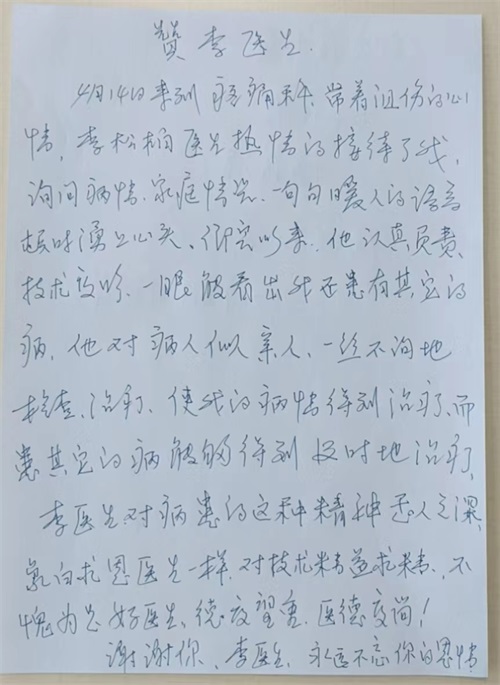 赞李医生.
4月14日来到疼痛科、带着沮伤的心
情,李松柏医生热情的接待了我,
询问病情、家庭情况、一句句暖人的语言
顿时涌上心头、他认真负责、
技术高明、一眼能看出我还患有其它的
病,他对病人似亲人、一丝不沟地
检查、治疗、使我的病情得到治疗、而
患其它的病能够得到及时地治疗,
李医生对病患的这种精神感人之深,
象白求恩医生一样、对技术精益求精、不
愧为好医生、德高望重、医德高尚!
谢谢你、李医生、永远不忘你的恩情